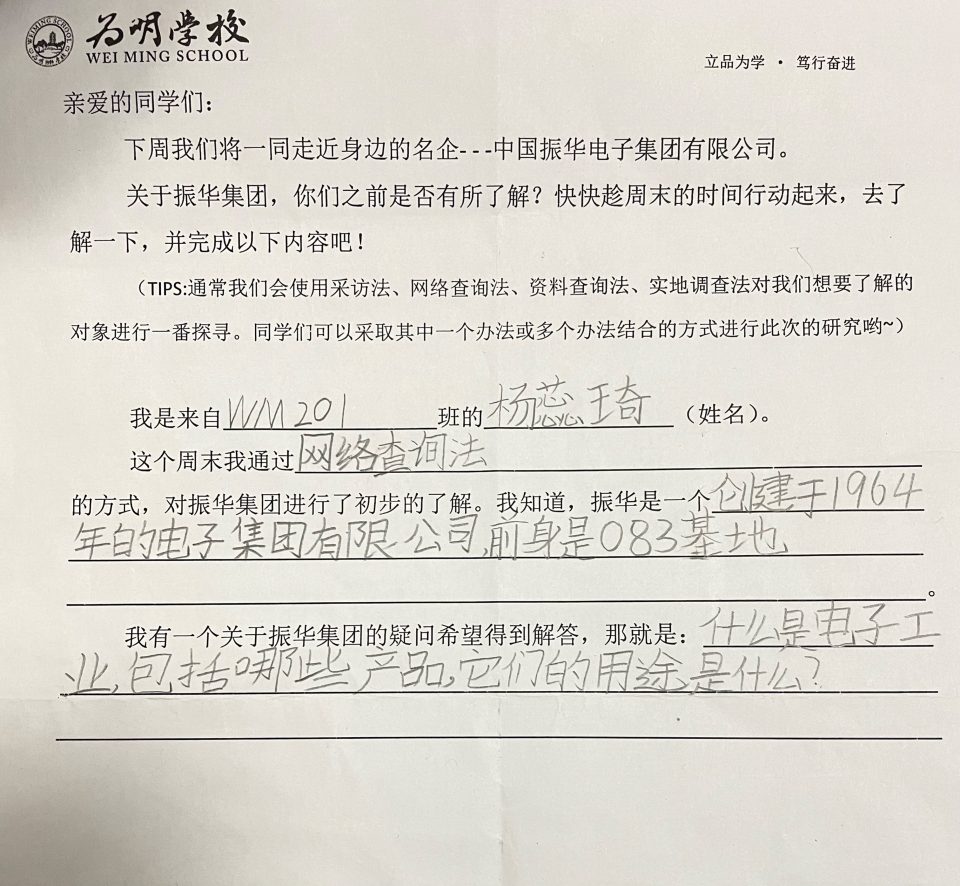 为明学校
WEI MING SCHOOL
立品为学 · 笃行奋进
亲爱的同学们：
下周我们将一同走近身边的名企---中国振华电子集团有限公司。
关于振华集团，你们之前是否有所了解？快快趁周末的时间行动起来，去了
解一下，并完成以下内容吧！
（TIPS:通常我们会使用采访法、网络查询法、资料查询法、实地调查法对我们想要了解的
对象进行一番探寻。同学们可以采取其中一个办法或多个办法结合的方式进行此次的研究哟~）
我是来自WM201班的杨蕊琦（姓名）。
这个周末我通过网络查询法
的方式，对振华集团进行了初步的了解。我知道，振华是一个创建于1964
年的电子集团有限公司,前身是083基地
。
我有一个关于振华集团的疑问希望得到解答，那就是：什么是电子工
业,包括哪些产品,它们的用途是什么?